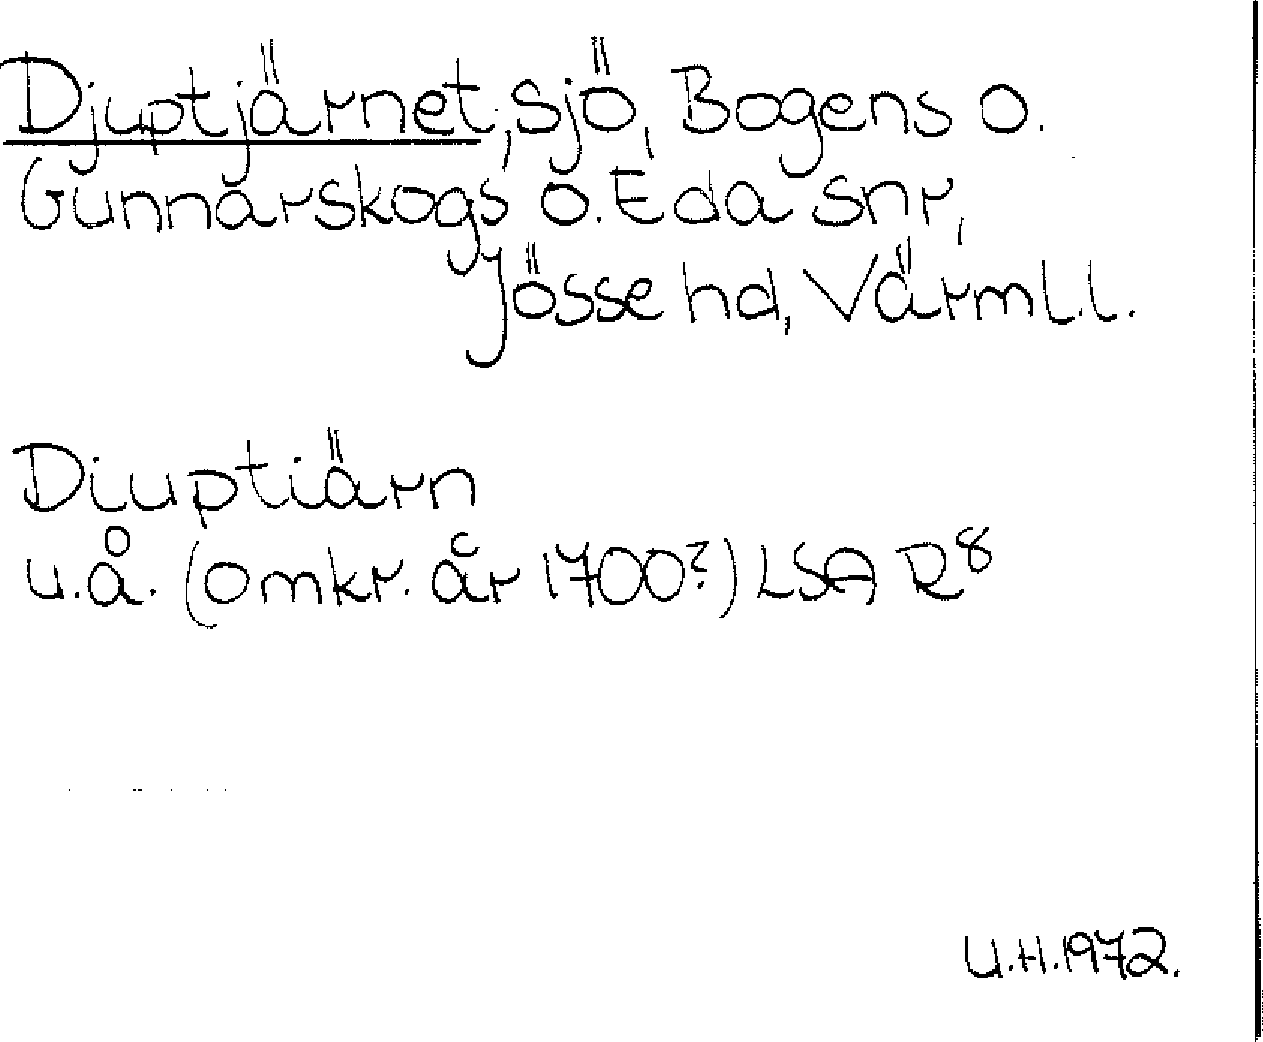 Djuptjärnet, sjö, Bogens o.
Gunnarskogs o. Eda snr,
Jösse hd, Värml.l.
Diuptiärn
u.å. (omkr. år 1700?) LSA R8
U.H.1972.